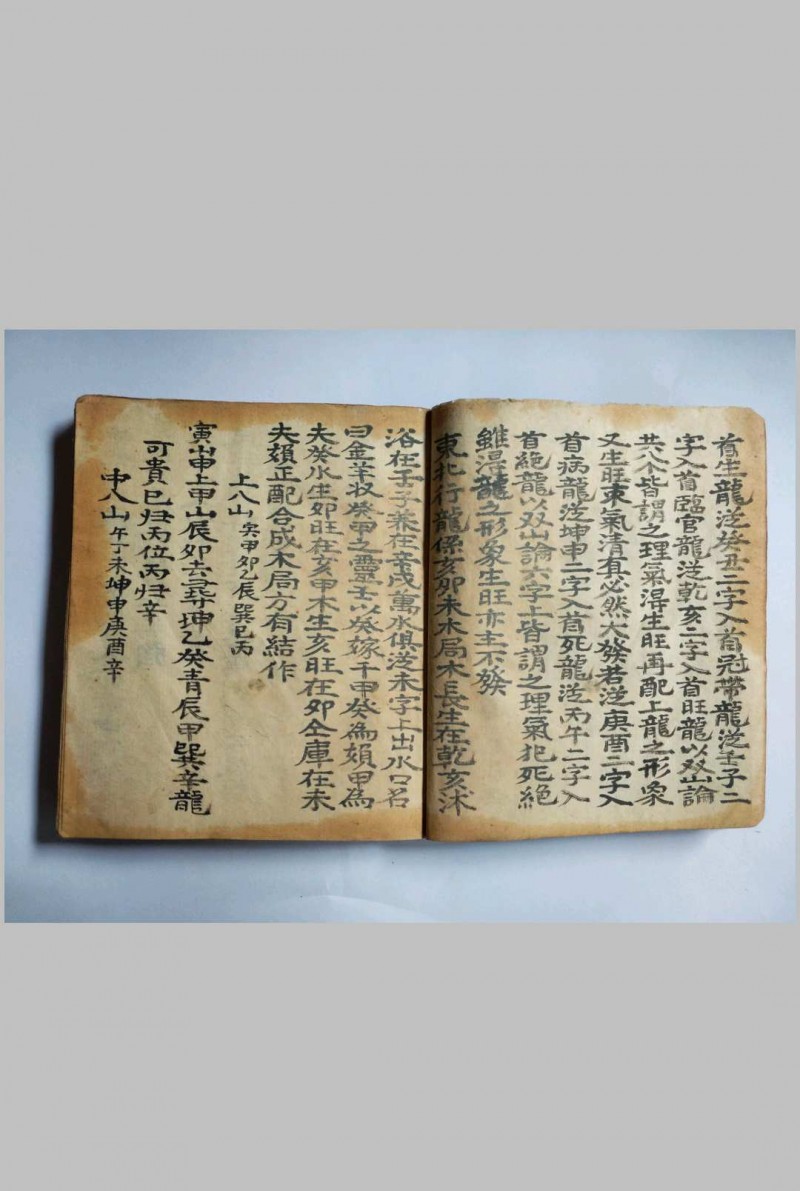 首生龍從癸丑二字入首冠帶龍從壬子二
字入首臨官龍從乾亥二字入首旺龍以双山論
共八个皆謂之理氣得生旺再配上龍之形象
又生旺束氣清真必然大發若從庚酉二字入
首病龍從坤申二字入首死龍從丙午二字入
首絕龍以双山論六字上皆謂之理氣犯死絕
雖得龍之形象生旺亦主不發
東北行龍係亥卯未木局木長生在乾亥沐
浴在壬子養在辛戌萬水俱從未字上出水口名
曰金羊收癸甲之靈壬以癸嫁于甲癸為婦甲為
夫癸水生卯旺在亥甲木生亥旺在卯仝庫在未
夫婦正配合成木局方有結作
上八山 寅甲卯乙辰巽巳丙
寅山申上甲山辰卯去尋坤乙癸青辰甲巽辛龍
可貴巳归丙位丙归辛
中八山 午丁未坤申庚酉辛